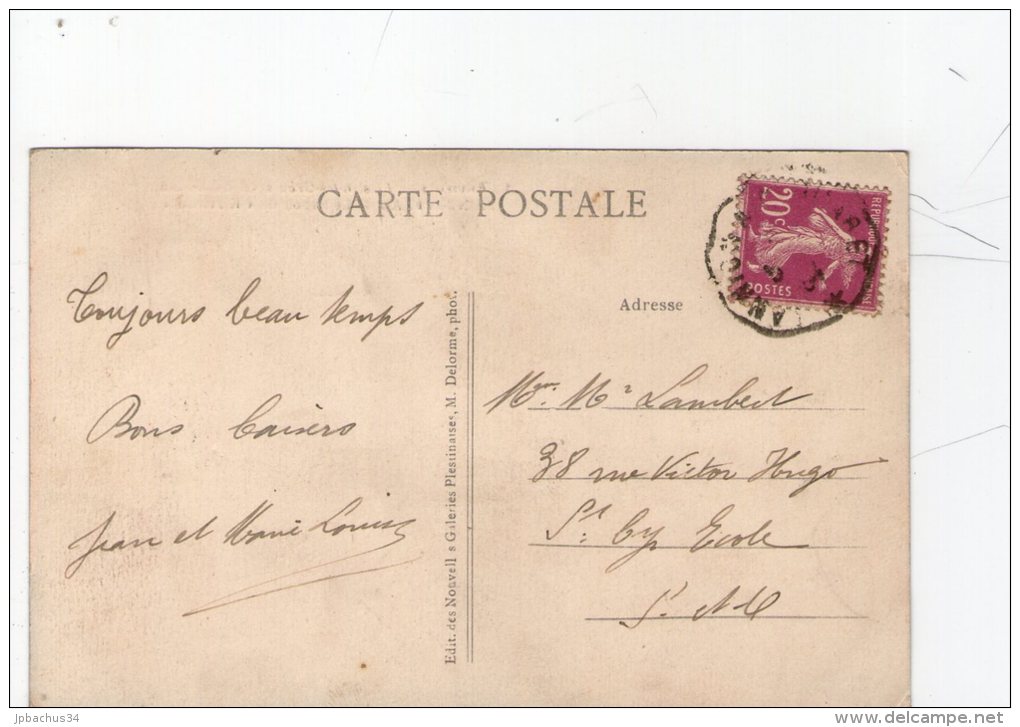 CARTE POSTALE
Toujours beau temps
Bons baisers
Jean et Marie Louise
Edit. des Nouvell s Galeries Plestinaises, M. Delorme, phot.
20c
POSTES
LANNION
Adresse
Mme M
Lambert
38 rue Victor Hugo
St. Cyr Ecole
jpbachus34
delcampe.net